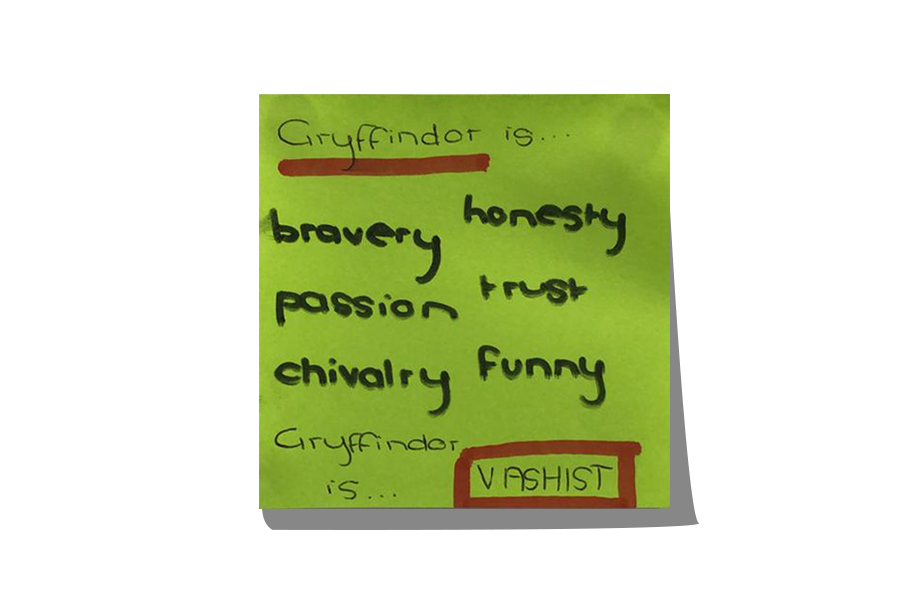 Gryffindor is...
bravery honesty
passion trust
chivalry funny
Gryffindor
is... VASHIST